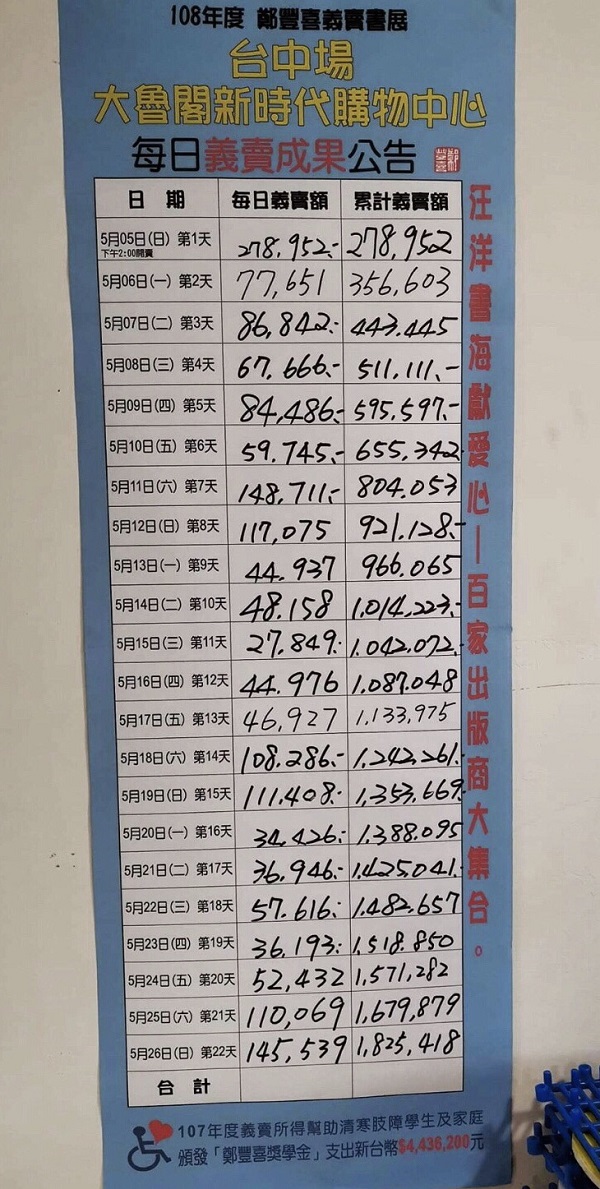 108年度 鄭豐喜義賣書展
台中場
大魯閣新時代購物中心
每日義賣成果公告
日期 每日義賣額 累計義賣額
5月05日(日) 第1天 278,952.- 278,952
下午2:00開賣
5月06日(一) 第2天 77,651 356,603
5月07日(二) 第3天 86,842.- 443.445
5月08日(三) 第4天 67.666.- 511.111.-
5月09日(四) 第5天 84,486.- 595.597.-
5月10日(五) 第6天 59.745.- 655.342
5月11日(六) 第7天 148,711.- 804.053
5月12日(日) 第8天 117,075 921.128.-
5月13日(一) 第9天 44.937 966.065
5月14日(二) 第10天 48.158 1.014,223.-
5月15日(三) 第11天 27.849.- 1.042.072.-
5月16日(四) 第12天 44.976 1.087.048
5月17日(五) 第13天 46,927 1,133,975
5月18日(六) 第14天 108.286.- 1.242.261.-
5月19日(日) 第15天 111.408.- 1,353.669.-
5月20日(一) 第16天 34.426.- 1.388.095
5月21日(二) 第17天 36.946.- 1.425.041.-
5月22日(三) 第18天 57.616.- 1.482.657
5月23日(四) 第19天 36.193.- 1,518.850
5月24日(五) 第20天 52,432 1,571,282
5月25日(六) 第21天 110,069 1,679,879
5月26日(日) 第22天 145,539 1,825,418
合計
汪洋書海獻愛心—百家出版商大集合。
107年度義賣所得幫助清寒肢障學生及家庭
頒發「鄭豐喜獎學金」支出新台幣$4,436,200元